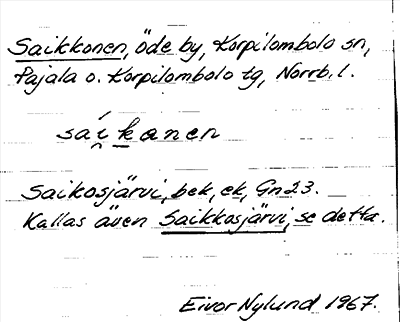 Saikkonen, öde by, Korpilombolo sn,
Pajala o. Korpilombolo tg, Norrb. l.
saíkanen
Saikosjärvi, bek, ek, Gn23.
Kallas även Saikkosjärvi, se detta.
Eivor Nylund 1967.